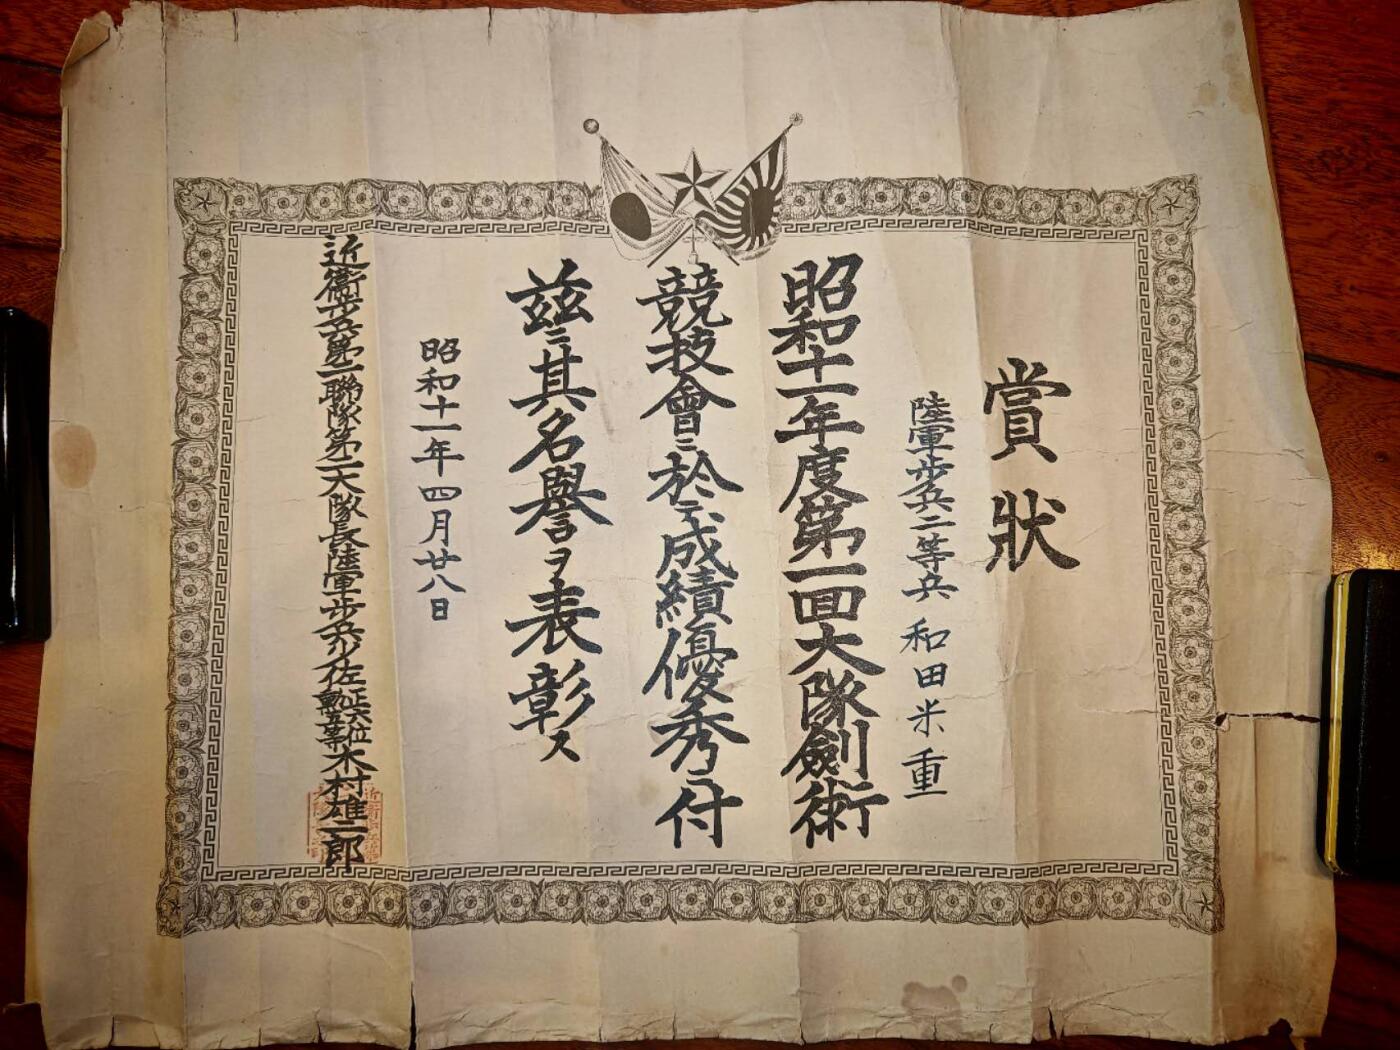 賞狀
陸軍歩兵二等兵 和田米重
昭和十一年度第一回大隊劍術
競技會ニ於テ成績優秀ニ付
茲ニ其名譽ヲ表彰ス
昭和十一年四月廿八日
近衞歩兵第二聯隊第一大隊長陸軍歩兵少佐正六位勳五等木村雄二郎